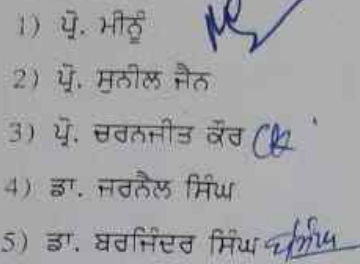 1) ਪ੍ਰੋ. ਮੀਨੂੰ
2) ਪ੍ਰੋ. ਸੁਨੀਲ ਜੈਨ
3) ਪ੍ਰੋ. ਚਰਨਜੀਤ ਕੌਰ
4) ਡਾ. ਜਰਨੈਲ ਸਿੰਘ
5) ਡਾ. ਬਰਜਿੰਦਰ ਸਿੰਘ